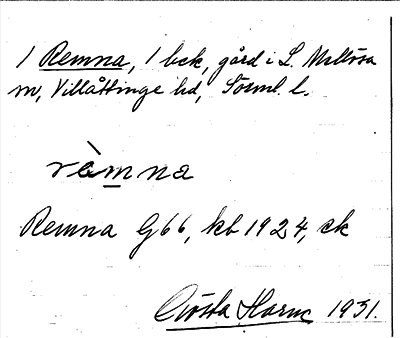 1 Remna, 1 bck, gård i L. Mellösa
sn, Villåttinge hd, Söml. l.
ràmna
Remna G66, kb 1924, ek
Gösta Harne 1931.